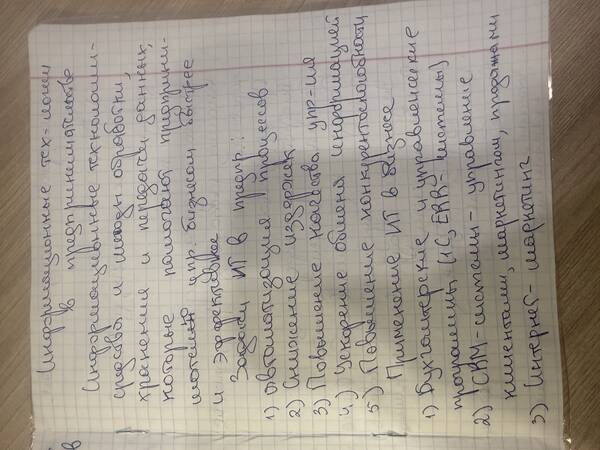 Информационные тех-логии
в предпринимательстве
Информационные технологии-
средства и методы обработки,
хранения и передачи данных,
которые помогают предприни-
мателю упр. бизнесом быстрее
и эффективнее
Задачи ИТ в предпр.:
1) автоматизация процессов
2) Снижение издержек
3) Повышение качества упр-ия
4) Ускорение обмена информацией
5) Повышение конкурентоспособности
Применение ИТ в бизнесе
1) Бухгалтерские и управленческие
программы (1С, ERP-системы)
2) CRM-системы - управление
клиентами, маркетингом, продажами
3) Интернет-маркетинг